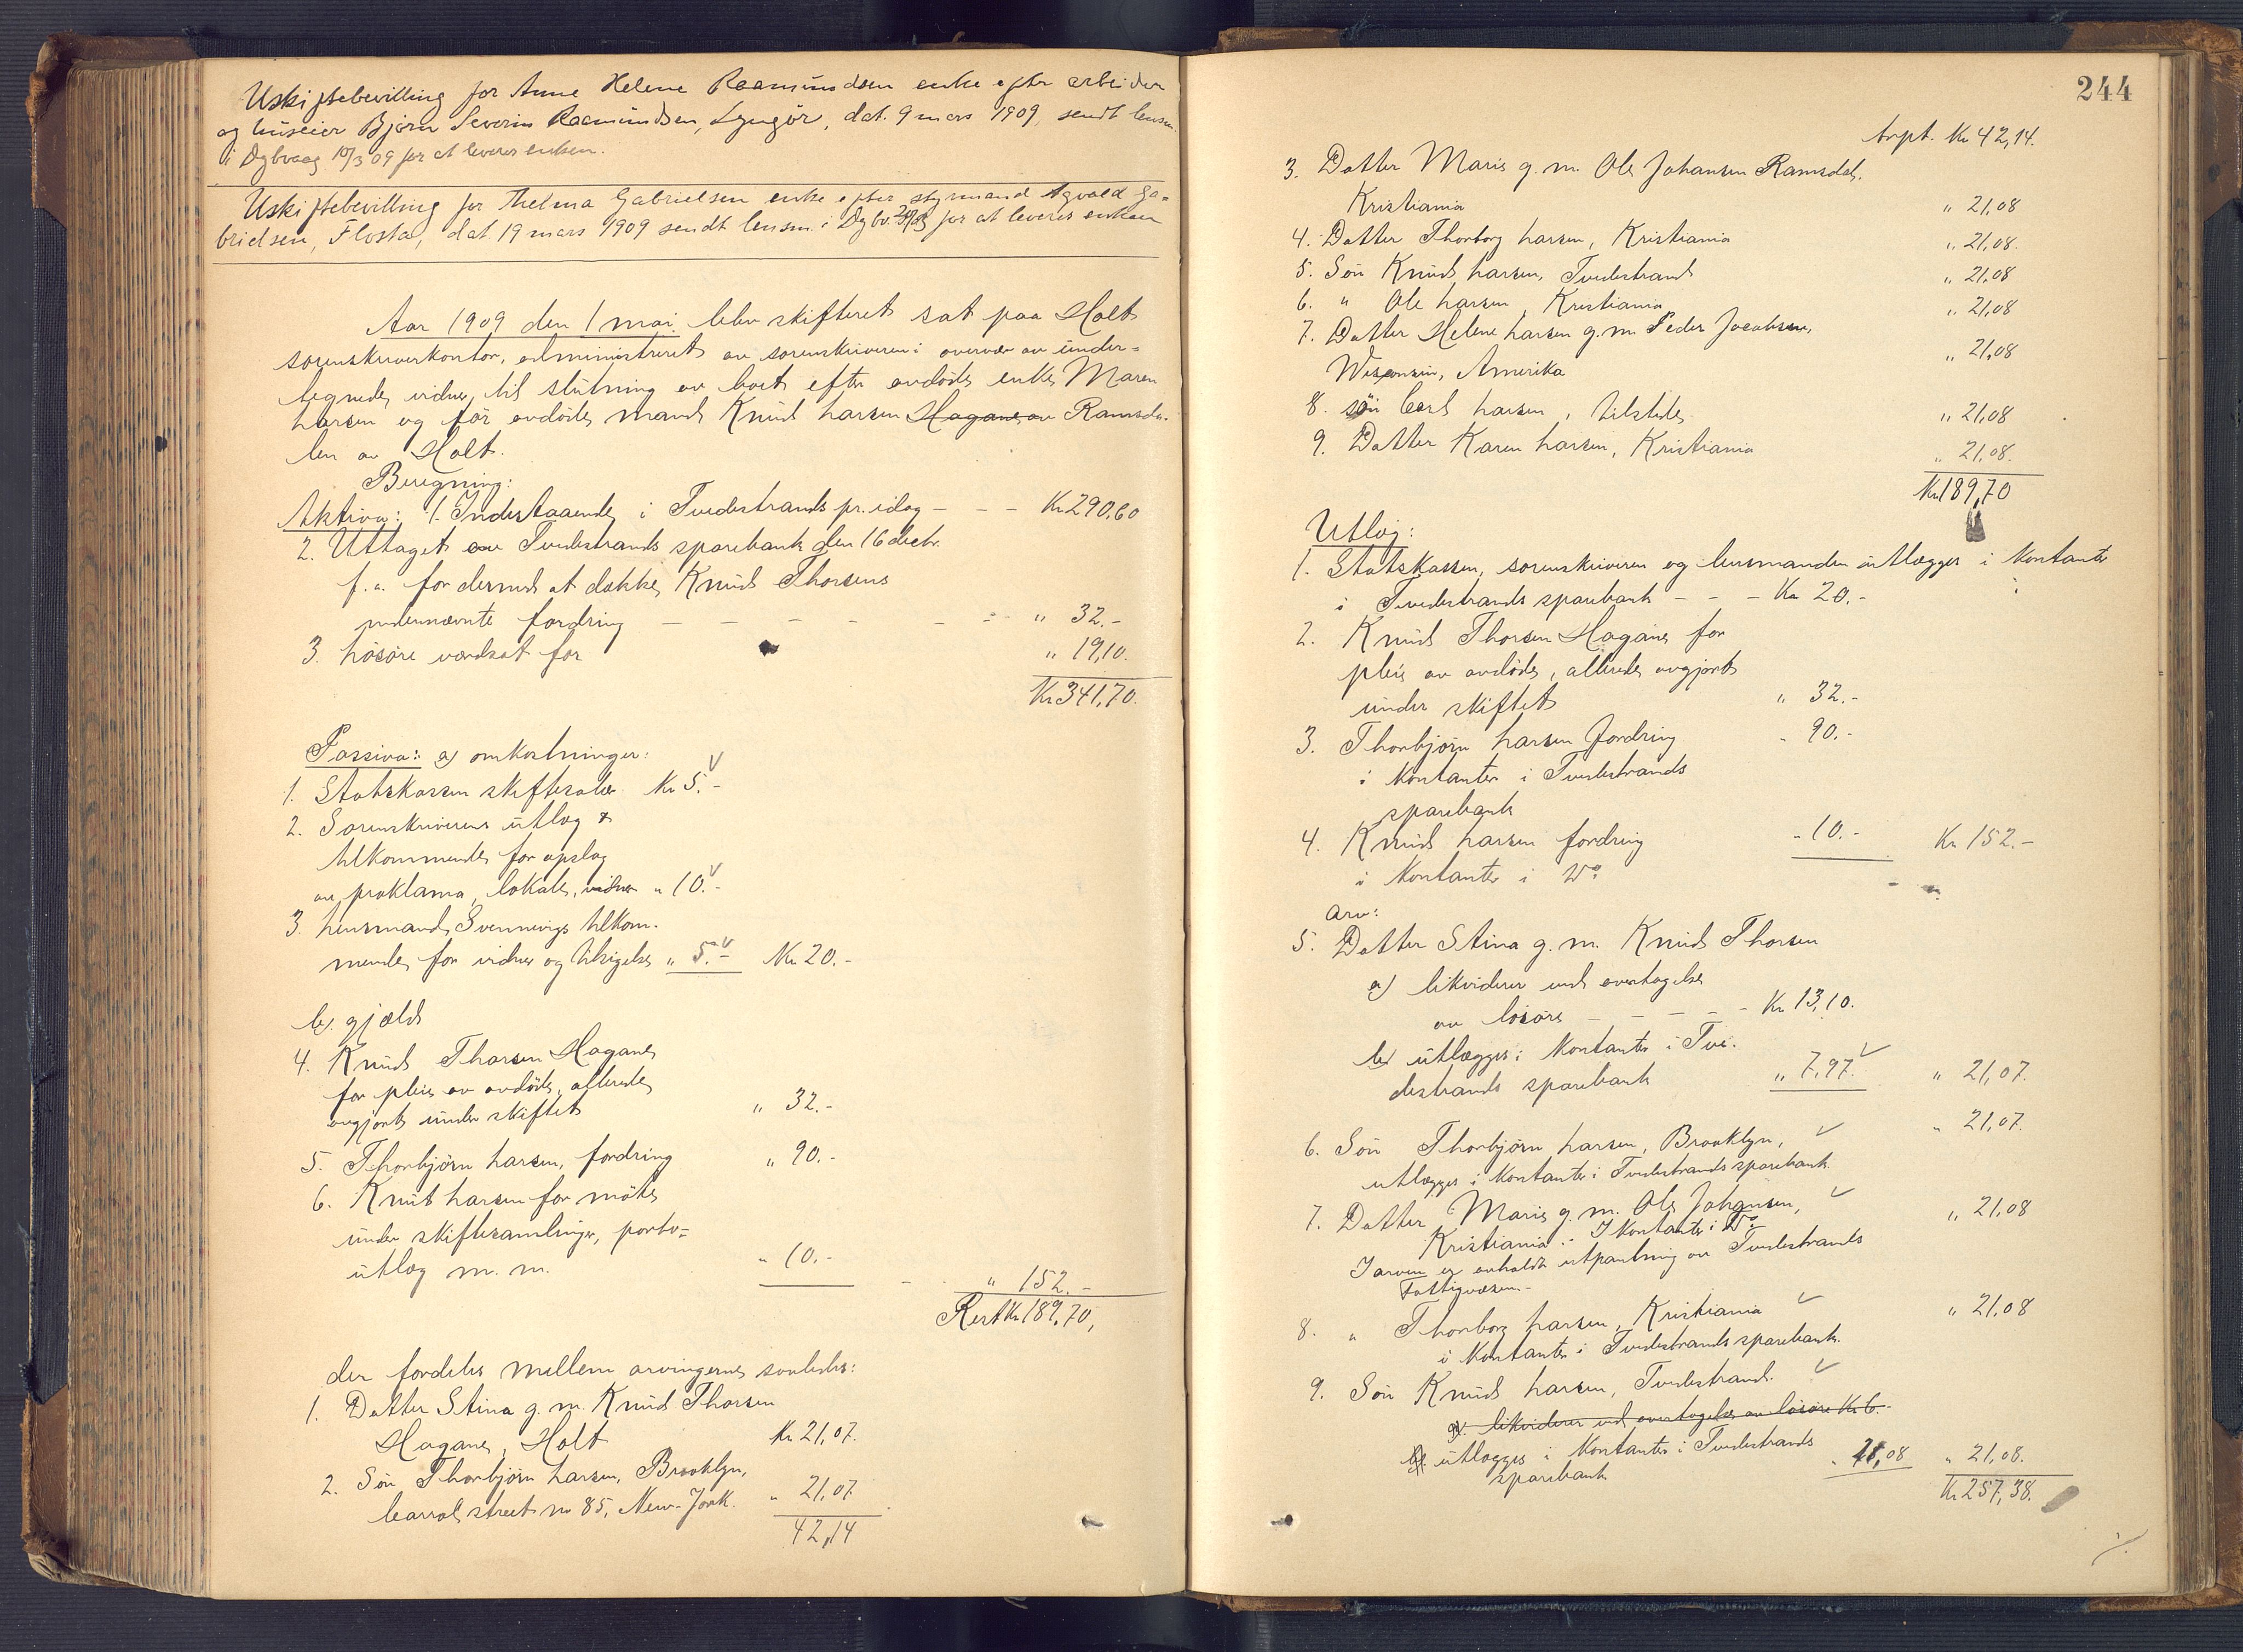 Uskiftebevilling for Anne Helene Rasmundsen enke efter arbeider
og huseier Bjørn Severin Rasmundsen, Lyngør, dat. 9 mars 1909, sendt lensm.
i Dybvaag 10/3 09 for at leveres enken.
Uskiftebevilling for Thelma Gabrielsen enke efter styrmand Agvald Ga=
brielsen, Flosta, dat 19 mars 1909 sendt lensm. i Dybv. for at leveres enken
Aar 1909 den 1 mai blev skifteret sat paa Holt
sorenskriverkontor, administreret av sorenskriveren i overvær av under=
tegnede vidner, til slutning av boet efter avdøde enke Maren
Larsen og før avdøde mand Knud Larsen Hagane av Ramsda-
len av Holt.
Beregning:
Aktiva: 1. Indestaaende i Tvedestrands pr. idag - - - Kr 290,60
2. Uttaget av Tvedestrands sparebank den 16 decbr.
f. a. for dermed at dække Knud Thorsens
undernævnte fordring - - - - - - " 32.-
3. Løsøre værdsat for " 19,10.
Kr 341,70.
Passiva: a) omkostninger:
1. Statskassen skifteavler Kr 5.-
2. Sorenskriverens utlæg &
tilkommende for opslag
av proklama, lokale, vidner " 10.-
3. Lensmand Svennevigs tilkom-
mende for vidner og tilsigelse " 5.- Kr 20.-
b). gjæld
4. Knud Thorsen Hagane
for pleie av avdøde, allerede
avgjort under skiftet " 32.-
5. Thorbjørn Larsen, fordring " 90.-
6. Knut Larsen for møte
under skiftesamlinger, porto=
utlæg m. m. " 10.-
" 152.-
Rest Kr 189,70,
der fordeles mellem arvingerne saaledes:
1. Datter Stina g. m. Knud Thorsen
Hagane, Holt Kr 21,07.
2. Søn Thorbjørn Larsen, Brooklyn,
Carrol street no 85, New-York. " 21,07
42,14
244
Trpt. Kr 42,14.
3. Datter Marie g. m. Ole Johansen Ramsdal.
Kristiania " 21,08
4. Datter Thorborg Larsen, Kristiania " 21,08.
5. Søn Knud Larsen, Tvedestrand " 21,08
6. " Ole Larsen, Kristiania " 21,08
7. Datter Helene Larsen g. m. Peder Jacobsen,
Wisconsin, Amerika " 21,08
8. søn Carl Larsen, tilstede " 21,08
9. Datter Karen Larsen, Kristiania " 21,08.
Kr 189,70
Utlæg:
1. Statskassen, sorenskriveren og lensmanden utlægges i kontanter
i Tvedestrands sparebank - - - Kr 20.-
2. Knud Thorsen Hagane for
pleie av avdøde, allerede avgjort
under skiftet " 32.-
3. Thorbjørn Larsen fordring " 90.-
i kontanter i Tvedestrands
sparebank
4. Knud Larsen fordring " 10.- Kr 152.-
i kontanter i Do
Arv:
5. Datter Stina g. m. Knud Thorsen
a) likviderer ved overtagelse
av løsøre - - - - - Kr 13,10.
b) utlægges i kontanter i Tve-
destrands sparebank " 7,97. " 21,07.
6. Søn Thorbjørn Larsen, Brooklyn, " 21,07.
utlægges i kontanter i Tvedestrands sparebank.
7. Datter Marie g. m. Ole Johansen, " 21,08
Kristiania. - I kontanter i Do
I arven er avholdt utpantning av Tvedestrands
Fattigvæsen.-
8. " Thorborg Larsen, Kristiania " 21,08
i kontanter i Tvedestrands sparebank.
9. Søn Knud Larsen, Tvedestrand.
a). likviderer ved overtagelse av løsøre Kr 6.-
b). utlægges i kontanter i Tvedestrands
sparebank " 21,08 " 21,08.
Kr 257,38.